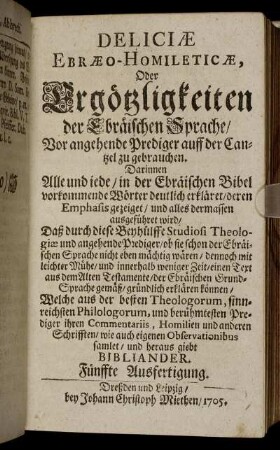 DELICIÆ
EBRÆO-HOMILETICÆ,
Oder
Ergötzligkeiten
der Ebräischen Sprache/
Vor angehende Prediger auff der Can-
tzel zu gebrauchen.
Darinnen
Alle und iede/ in der Ebräischen Bibel
vorkommende Wörter deutlich erkläret/ deren
Emphasis gezeiget/ und alles dermassen
ausgeführet wird/
Daß durch diese Beyhülffe Studiosi Theolo-
giæ und angehende Prediger/ ob sie schon der Ebräi-
schen Sprache nicht eben mächtig wären/ dennoch mit
leichter Mühe/ und innerhalb weniger Zeit einen Text
aus dem Alten Testamente/ der Ebräischen Grund-
Sprache gemäß/ gründlich erklären können/
Welche aus der besten Theologorum, sinn-
reichsten Philologorum, und berühmtesten Pre-
diger ihren Commentariis, Homilien und anderen
Schrifften/ wie auch eigenen Observationibus
samlet/ und heraus giebt
BIBLIANDER.
Fünffte Ausfertigung.
Dreßden und Leipzig/
bey Johann Christoph Miethen/ 1705.